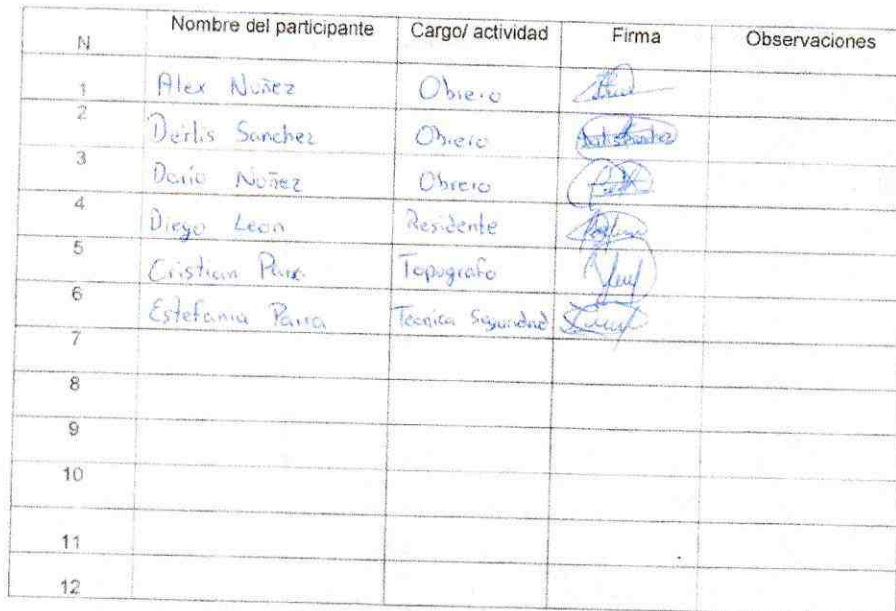 N Nombre del participante Cargo/ actividad Firma Observaciones
1 Alex Nuñez Obrero
2 Derlis Sanchez Obrero
3 Dario Nuñez Obrero
4 Diego Leon Residente
5 Cristian Topografo
6 Estefania Parra Tecnica Seguridad
7
8
9
10
11
12